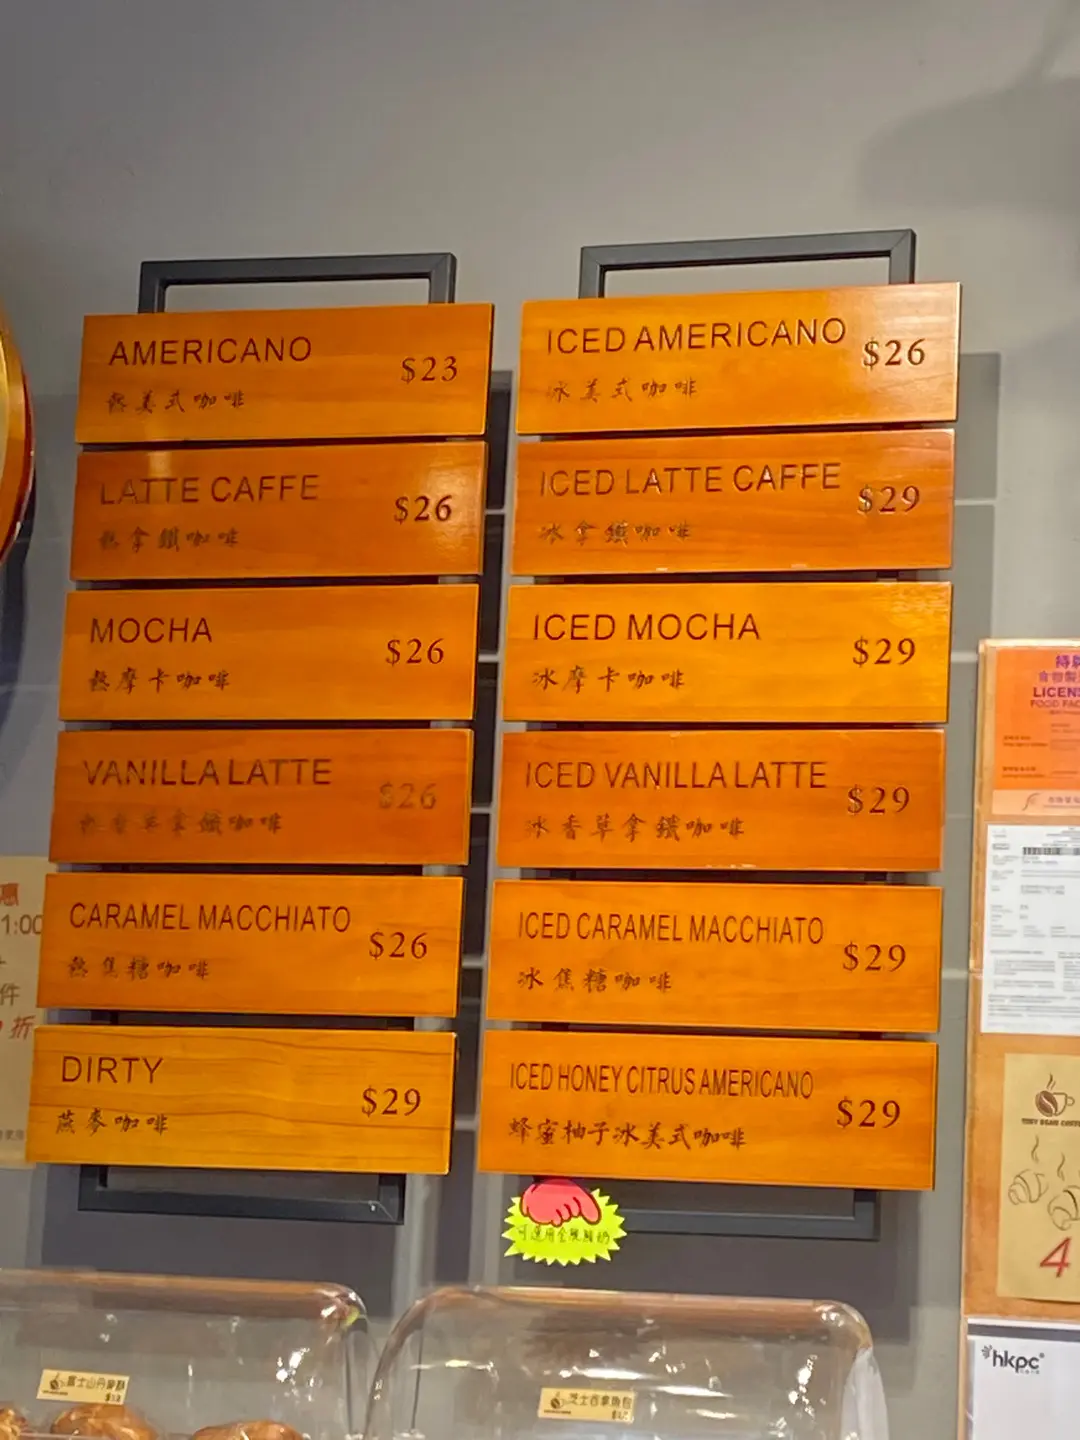 AMERICANO
$23
熱美式咖啡
LATTE CAFFE
$26
熱拿鐵咖啡
MOCHA
$26
熱摩卡咖啡
VANILLA LATTE
$26
熱香草拿鐵咖啡
CARAMEL MACCHIATO
$26
熱焦糖咖啡
DIRTY
$29
燕麥咖啡
ICED AMERICANO
$26
冰美式咖啡
ICED LATTE CAFFE
$29
冰拿鐵咖啡
ICED MOCHA
$29
冰摩卡咖啡
ICED VANILLA LATTE
$29
冰香草拿鐵咖啡
ICED CARAMEL MACCHIATO
$29
冰焦糖咖啡
ICED HONEY CITRUS AMERICANO
$29
蜂蜜柚子冰美式咖啡
可選用
惠
1:00
件
折
LICENS
FOOD FAC
4
hkpc